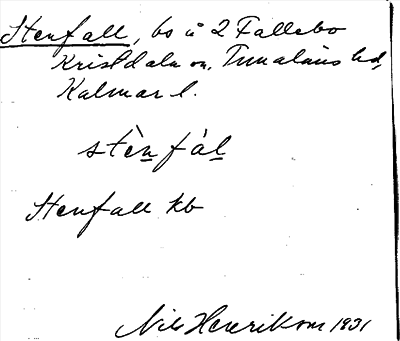 Stenfall, bs å 2 Fallebo
Kristdala sn, Tunaläns hd,
Kalmar l.
stènfàl
Stenfall kb
Nils Henrikson 1931